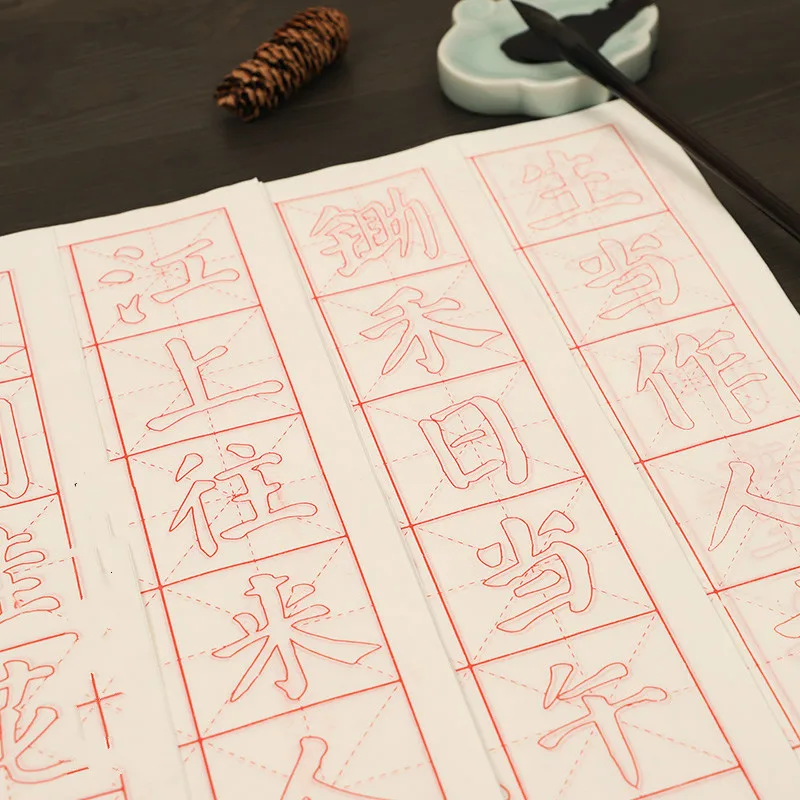 花
江上往来人
锄禾日当午
生当作人